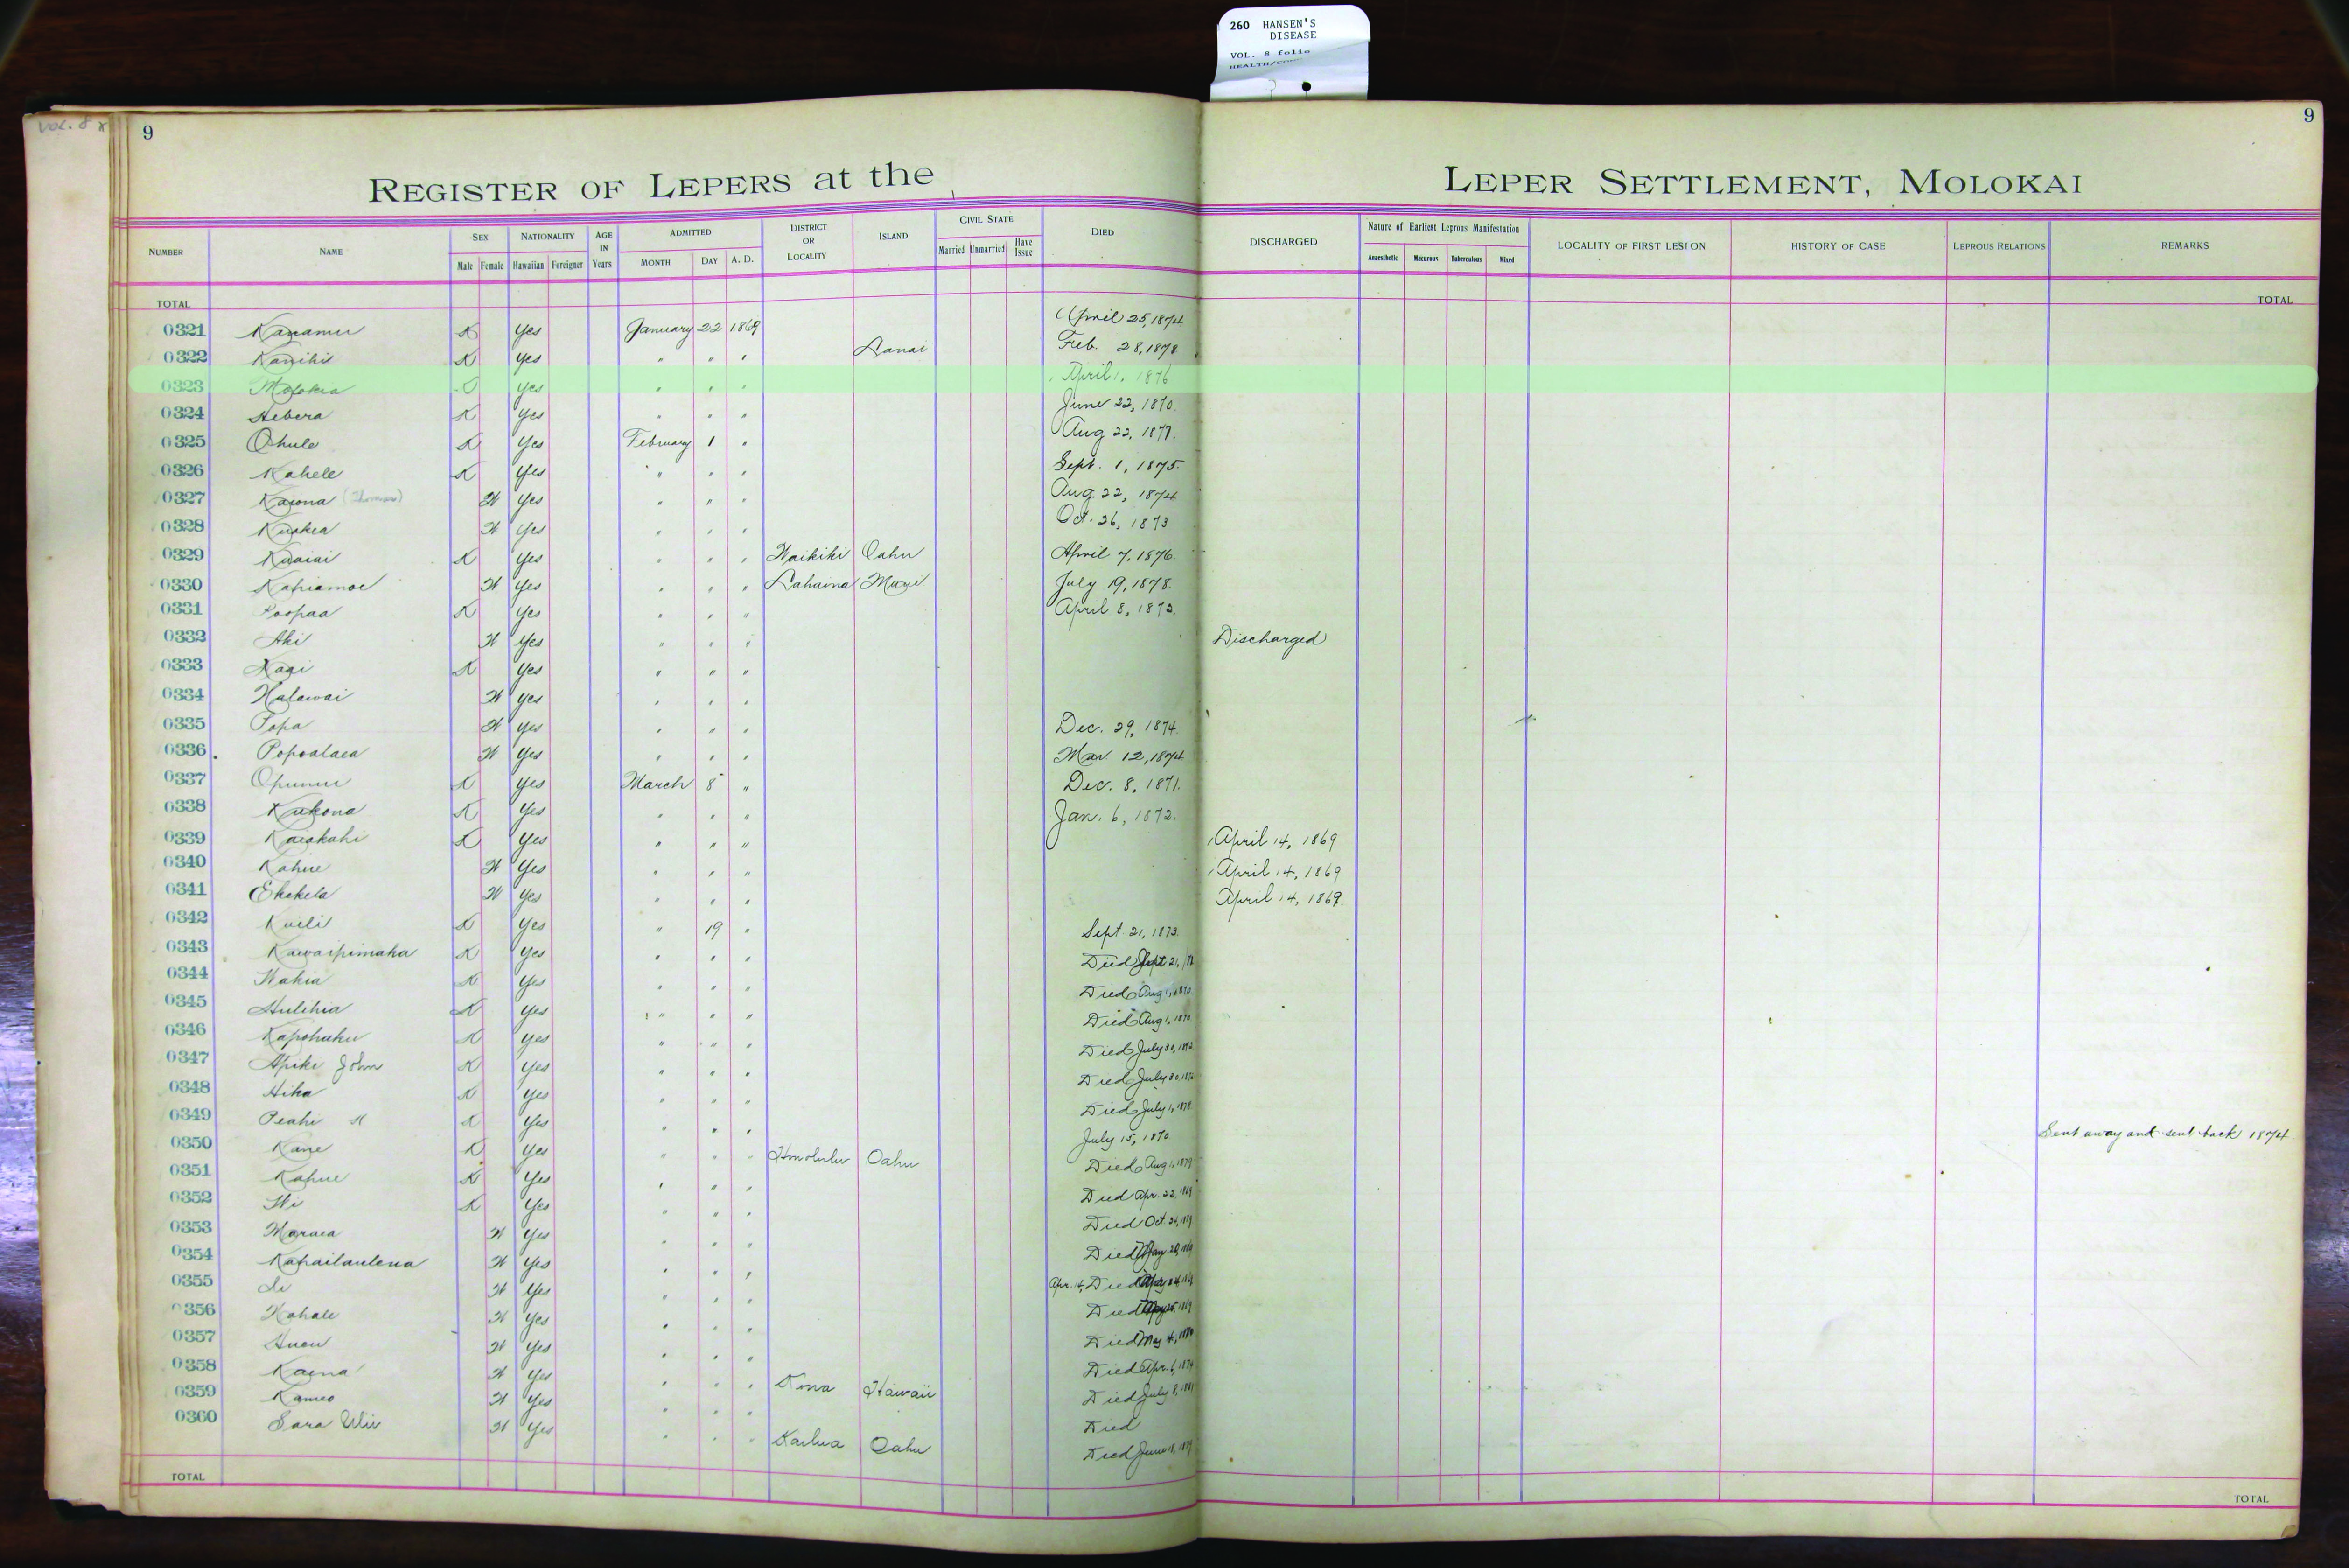 260 HANSEN'S
DISEASE
VOL. 8 folio
Vol. 8
9
9
REGISTER OF LEPERS at the LEPER SETTLEMENT, MOLOKAI
NUMBER NAME SEX NATIONALITY AGE IN Years ADMITTED DISTRICT OR LOCALITY ISLAND CIVIL STATE DIED DISCHARGED Nature of Earliest Leprous Manifestation LOCALITY OF FIRST LESION HISTORY OF CASE LEPROUS RELATIONS REMARKS
Male Female Hawaiian Foreigner MONTH DAY A. D. Married Unmarried Have Issue Anaesthetic Macurous Tuberculous Mixed
TOTAL TOTAL
0321 Kanamu K Yes January 22 1869 April 25, 1874
0322 Kanihi K Yes " " " Lanai Feb. 28, 1878
0323 Molokia K Yes " " " April 1, 1876
0324 Hebera K Yes " " " June 22, 1870
0325 Ohule K Yes February 1 " Aug 22, 1877.
0326 Kahele K Yes " " " Sept. 1, 1875.
0327 Kaiona (Thomas) W Yes " " " Aug. 22, 1874
0328 Kuakea W Yes " " " Oct. 26, 1873
0329 Kuaiai K Yes " " " Waikiki Oahu April 7, 1876.
0330 Kahiamoe W Yes " " " Lahaina Maui July 19, 1878.
0331 Poopaa K Yes " " " April 8, 1873.
0332 Aki W Yes " " " Discharged
0333 Kaai K Yes " " "
0334 Halawai W Yes " " "
0335 Popa W Yes " " " Dec. 29, 1874.
0336 Popoalaea W Yes " " " Mar. 12, 1874
0337 Opunui K Yes March 8 " Dec. 8, 1871.
0338 Kukona K Yes " " " Jan. 6, 1872.
0339 Kaiakahi K Yes " " " April 14, 1869
0340 Kahue W Yes " " " April 14, 1869
0341 Ekekela W Yes " " " April 14, 1869.
0342 Kuili K Yes " 19 " Sept. 21, 1873.
0343 Kawaipimaka K Yes " " " Died Sept 21,
0344 Wakia K Yes " " " Died Aug 1, 1870
0345 Hulihia K Yes " " " Died Aug 1, 1870
0346 Kapohaku K Yes " " " Died July 30, 1872
0347 Apiki John K Yes " " " Died July 30, 1872
0348 Hika K Yes " " " Died July 1, 1878
0349 Peahi K Yes " " " July 15, 1870. Sent away and sent back 1874.
0350 Kane K Yes " " " Honolulu Oahu Died Aug 1, 1879
0351 Kahue K Yes " " " Died Apr. 22, 1869
0352 Wi K Yes " " " Died Oct. 24, 1879
0353 Maraea W Yes " " " Died May 20, 1869
0354 Kahailaulena W Yes " " " Apr. 14, Died
0355 Li W Yes " " " Died 1869
0356 Kahale W Yes " " " Died May 4, 1880
0357 Aueu W Yes " " " Died Apr. 6, 1874
0358 Kaena W Yes " " " Kona Hawaii Died July 8, 1881
0359 Kameo W Yes " " " Died
0360 Sara Ulii W Yes " " " Kailua Oahu Died June 18, 1879
TOTAL TOTAL